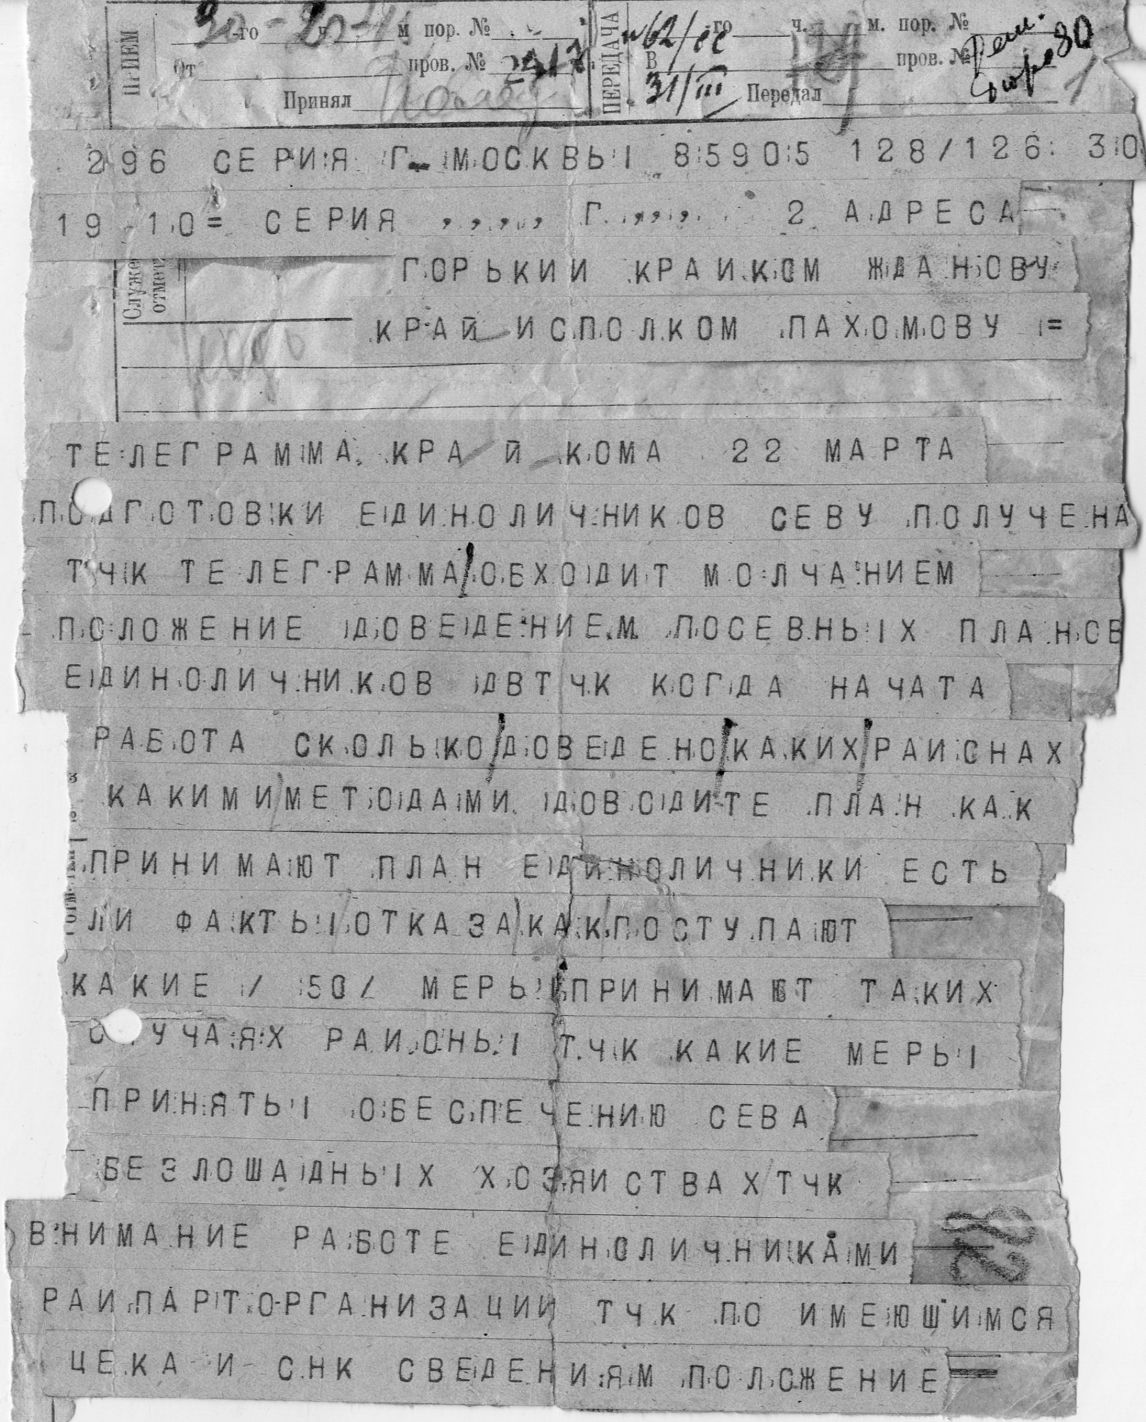 ПРИЕМ
30-го 20 ч 45 м пор. №
От пров. № 2517
Принял
ПЕРЕДАЧА
го ч. м. пор. №
В пров. №
31/III Передал
296 СЕРИЯ Г- МОСКВЫ 85905 128/126 30
19 10= СЕРИЯ ,,,,, Г ,,,, 2 АДРЕСА
ГОРЬКИИ КРАИКОМ ЖДАНОВУ
КРАЙ ИСПОЛКОМ ПАХОМОВУ =
ТЕЛЕГРАММА КРА Й КОМА 22 МАРТА
ПОДГОТОВКИ ЕДИНОЛИЧНИКОВ СЕВУ ПОЛУЧЕНА
ТЧК ТЕЛЕГРАММА/ОБХОДИТ МОЛЧАНИЕМ
ПОЛОЖЕНИЕ ДОВЕДЕНИЕМ ПОСЕВНЫХ ПЛАНОВ
ЕДИНОЛИЧНИКОВ ДВТЧК КОГДА НАЧАТА
РАБОТА СКОЛЬКО/ДОВЕДЕНО/КАКИХ/РАИОНАХ
КАКИМИ/МЕТОДАМИ ДОВОДИТЕ ПЛАН КАК
ПРИНИМАЮТ ПЛАН ЕДИНОЛИЧНИКИ ЕСТЬ
ЛИ ФАКТЫ/ОТКАЗА/КАК/ПОСТУПАЮТ
КАКИЕ / 50/ МЕРЫ/ПРИНИМАЮТ ТАКИХ
СЛУЧАЯХ РАИОНЫ ТЧК КАКИЕ МЕРЫ
ПРИНЯТЫ ОБЕСПЕЧЕНИЮ СЕВА
БЕЗЛОШАДНЫХ ХОЗЯИСТВАХ/ТЧК
ВНИМАНИЕ РАБОТЕ ЕДИНОЛИЧНИКАМИ
РАИПАРТОРГАНИЗАЦИИ ТЧК ПО ИМЕЮШИМСЯ
ЦЕКА И СНК СВЕДЕНИЯМ ПОЛОЖЕНИЕ